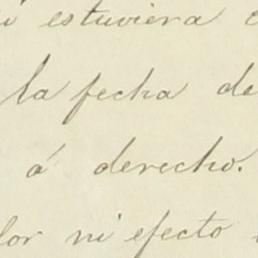 estuviera
la fecha de
á derecho.
lor ni efecto